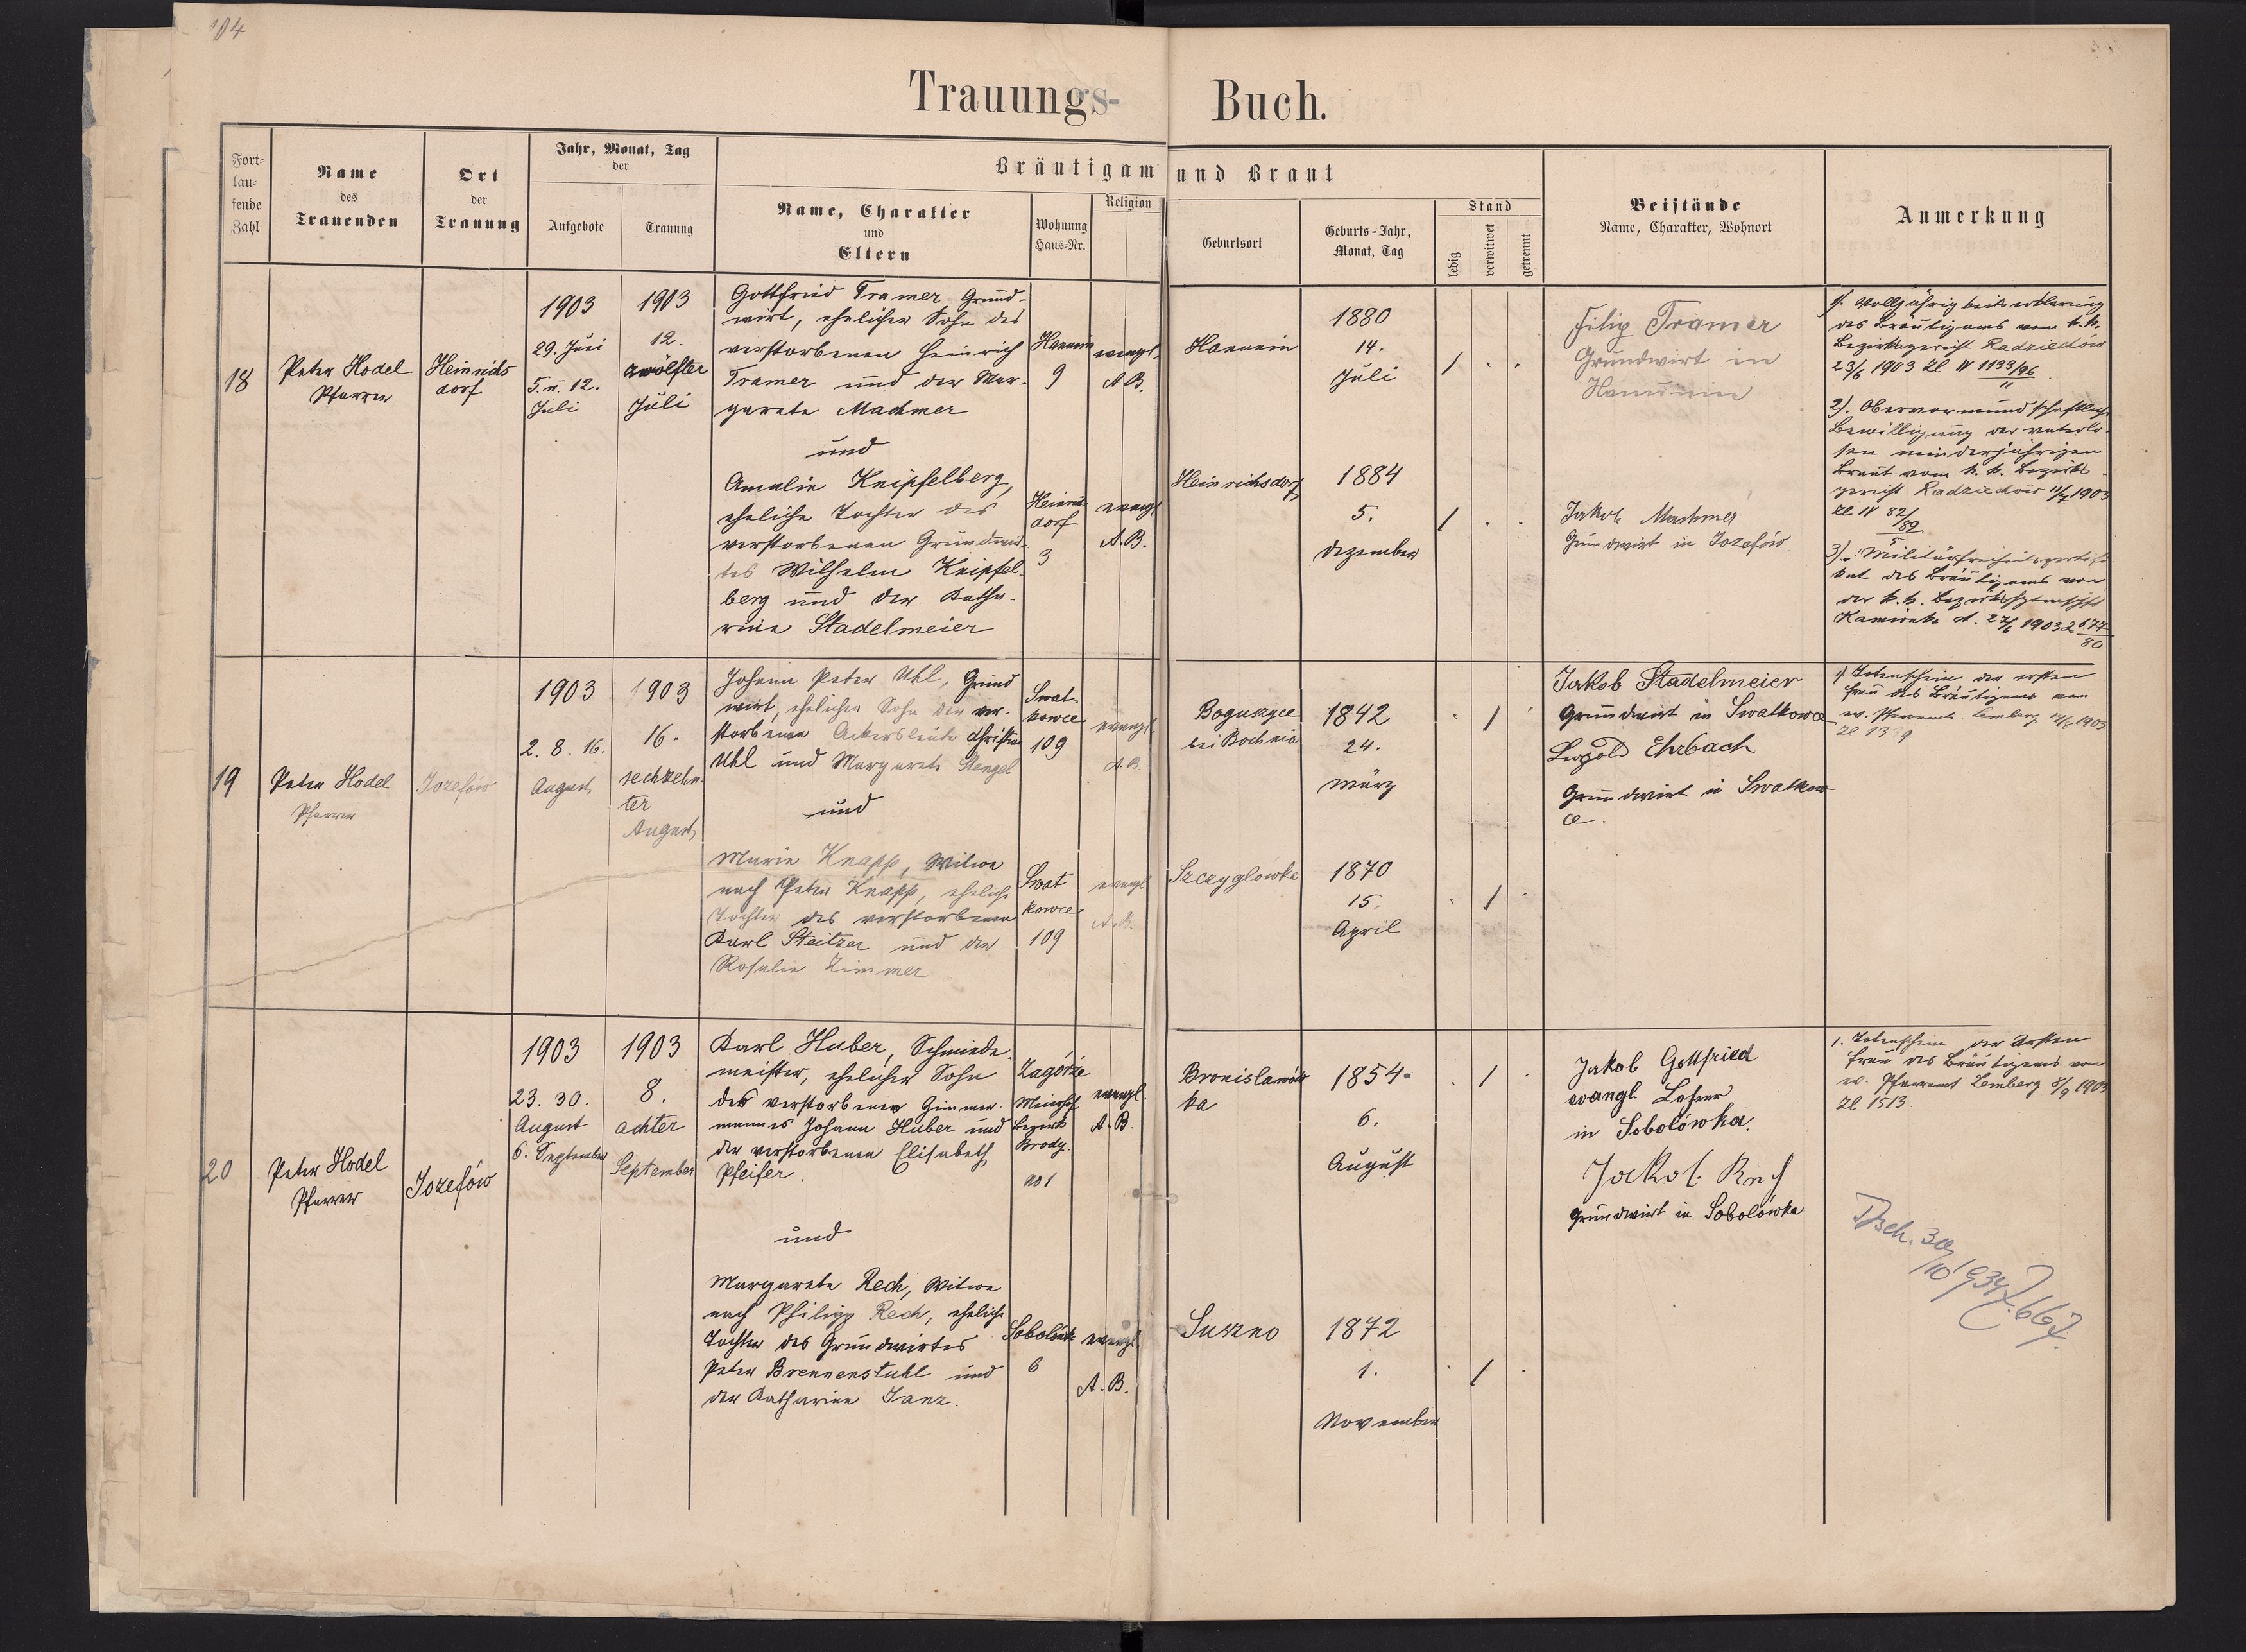 104
Trauungs-Buch.
Fort-
lau-
fende
Zahl
Name
des
Trauenden
Ort
der
Trauung
Jahr, Monat, Tag
der
Aufgebote
Trauung
Bräutigam und Braut
Name, Charakter
und
Eltern
Wohnung
Haus-Nr.
Religion
Geburtsort
Geburts-Jahr,
Monat, Tag
Stand
ledig
verwitwet
getrennt
Beistände
Name, Charakter, Wohnort
Anmerkung
18
Peter Hodel
Pfarrer
Heinrichs
dorf
1903
29. Juni
5. u. 12.
Juli
1903
12.
zwölfter
Juli
Gottfried Tramer Grund-
wirt, ehelicher Sohn des
verstorbenen Heinrich
Tramer und der Mar-
garete Machmer
und
Amalie Knipfelberg,
eheliche Tochter des
verstorbenen Grundwir-
tes Wilhelm Knipfel-
berg und der Katha-
rina Stadelmeier
Hanunin
9
evangl.
A.B.
Heinrichs
dorf
3
evangl
A.B.
Hanunin
1880
14.
Juli
/ . .
Heinrichsdorf
1884
5.
Dezember
/ . .
Filip Tramer
Grundwirt in
Hanunin
Jakob Machmer
Grundwirt in Jozefów
1). Volljährigkeitserklärung
des Bräutigams vom k.k.
Bezirksgericht Radziechów
23/6 1903 Zl IV 1133/96
11
2). Obervormundschaftliche
Bewilligung der vaterlo-
sen minderjährigen
Braut vom k. k. Bezirks-
gericht Radziechów 11/7 1903
Zl IV 82/89
5
3). Militärfreiheitszertifi-
kat des Bräutigams von
der k.k. Bezirkshptmschft
Kamionka d. 27/6 1903 Z 677/80
19
Peter Hodel
Pfarrer
Jozefów
1903
2. 8. 16.
August
1903
16.
sechzehn-
ter
August
Johann Peter Uhl, Grund
wirt, ehelicher Sohn der ver-
storbenen Ackersleute Christian
Uhl und Margarete Stengel
und
Marie Knapp, Witwe
nach Peter Knapp, eheliche
Tochter des verstorbenen
Karl Steitzer und der
Rosalie Zimmer
Swat-
kowce
109
evangl.
A.B.
Swat
kowce
109
evangl
A.B.
Boguszyce
bei Bochnia
1842
24.
März
. / .
Szczyglowka
1870
15.
April
. / .
Jakob Stadelmeier
Grundwirt in Swatkowce
Leopold Ehrbach
Grundwirt in Swatkow-
ce.
1) Totenschein der ersten
Frau des Bräutigams vom
ev. Pfarramt Lemberg 1903
20
Peter Hodel
Pfarrer
Jozefów
1903
23. 30.
August
6. September
1903
8.
achter
September
Karl Huber, Schmiede-
meister, ehelicher Sohn
des verstorbenen Zimmer-
mannes Johann Huber und
der verstorbenen Elisabeth
Pfeifer.
und
Margarete Rech, Witwe
nach Philipp Rech, eheliche
Tochter des Grundwirtes
Peter Brennenstuhl und
der Katharina Janz.
Zagórze
Meierhof
Bezirk
Brody
No 1
evangl.
A.B.
Sobolówka
6
evangl.
A.B.
Bronislawów
ka
1854
6.
August
. / .
Suszno
1872
1.
November
. / .
Jakob Gottfried
evangl. Lehrer
in Sobolówka.
Jakob
Grundwirt in Sobolówka
1. Totenschein der ersten
Frau des Bräutigams vom
ev. Pfarramt Lemberg 8/9 1903
Zl 1513.
Tbsch. 30/10 1934 Z. 667.